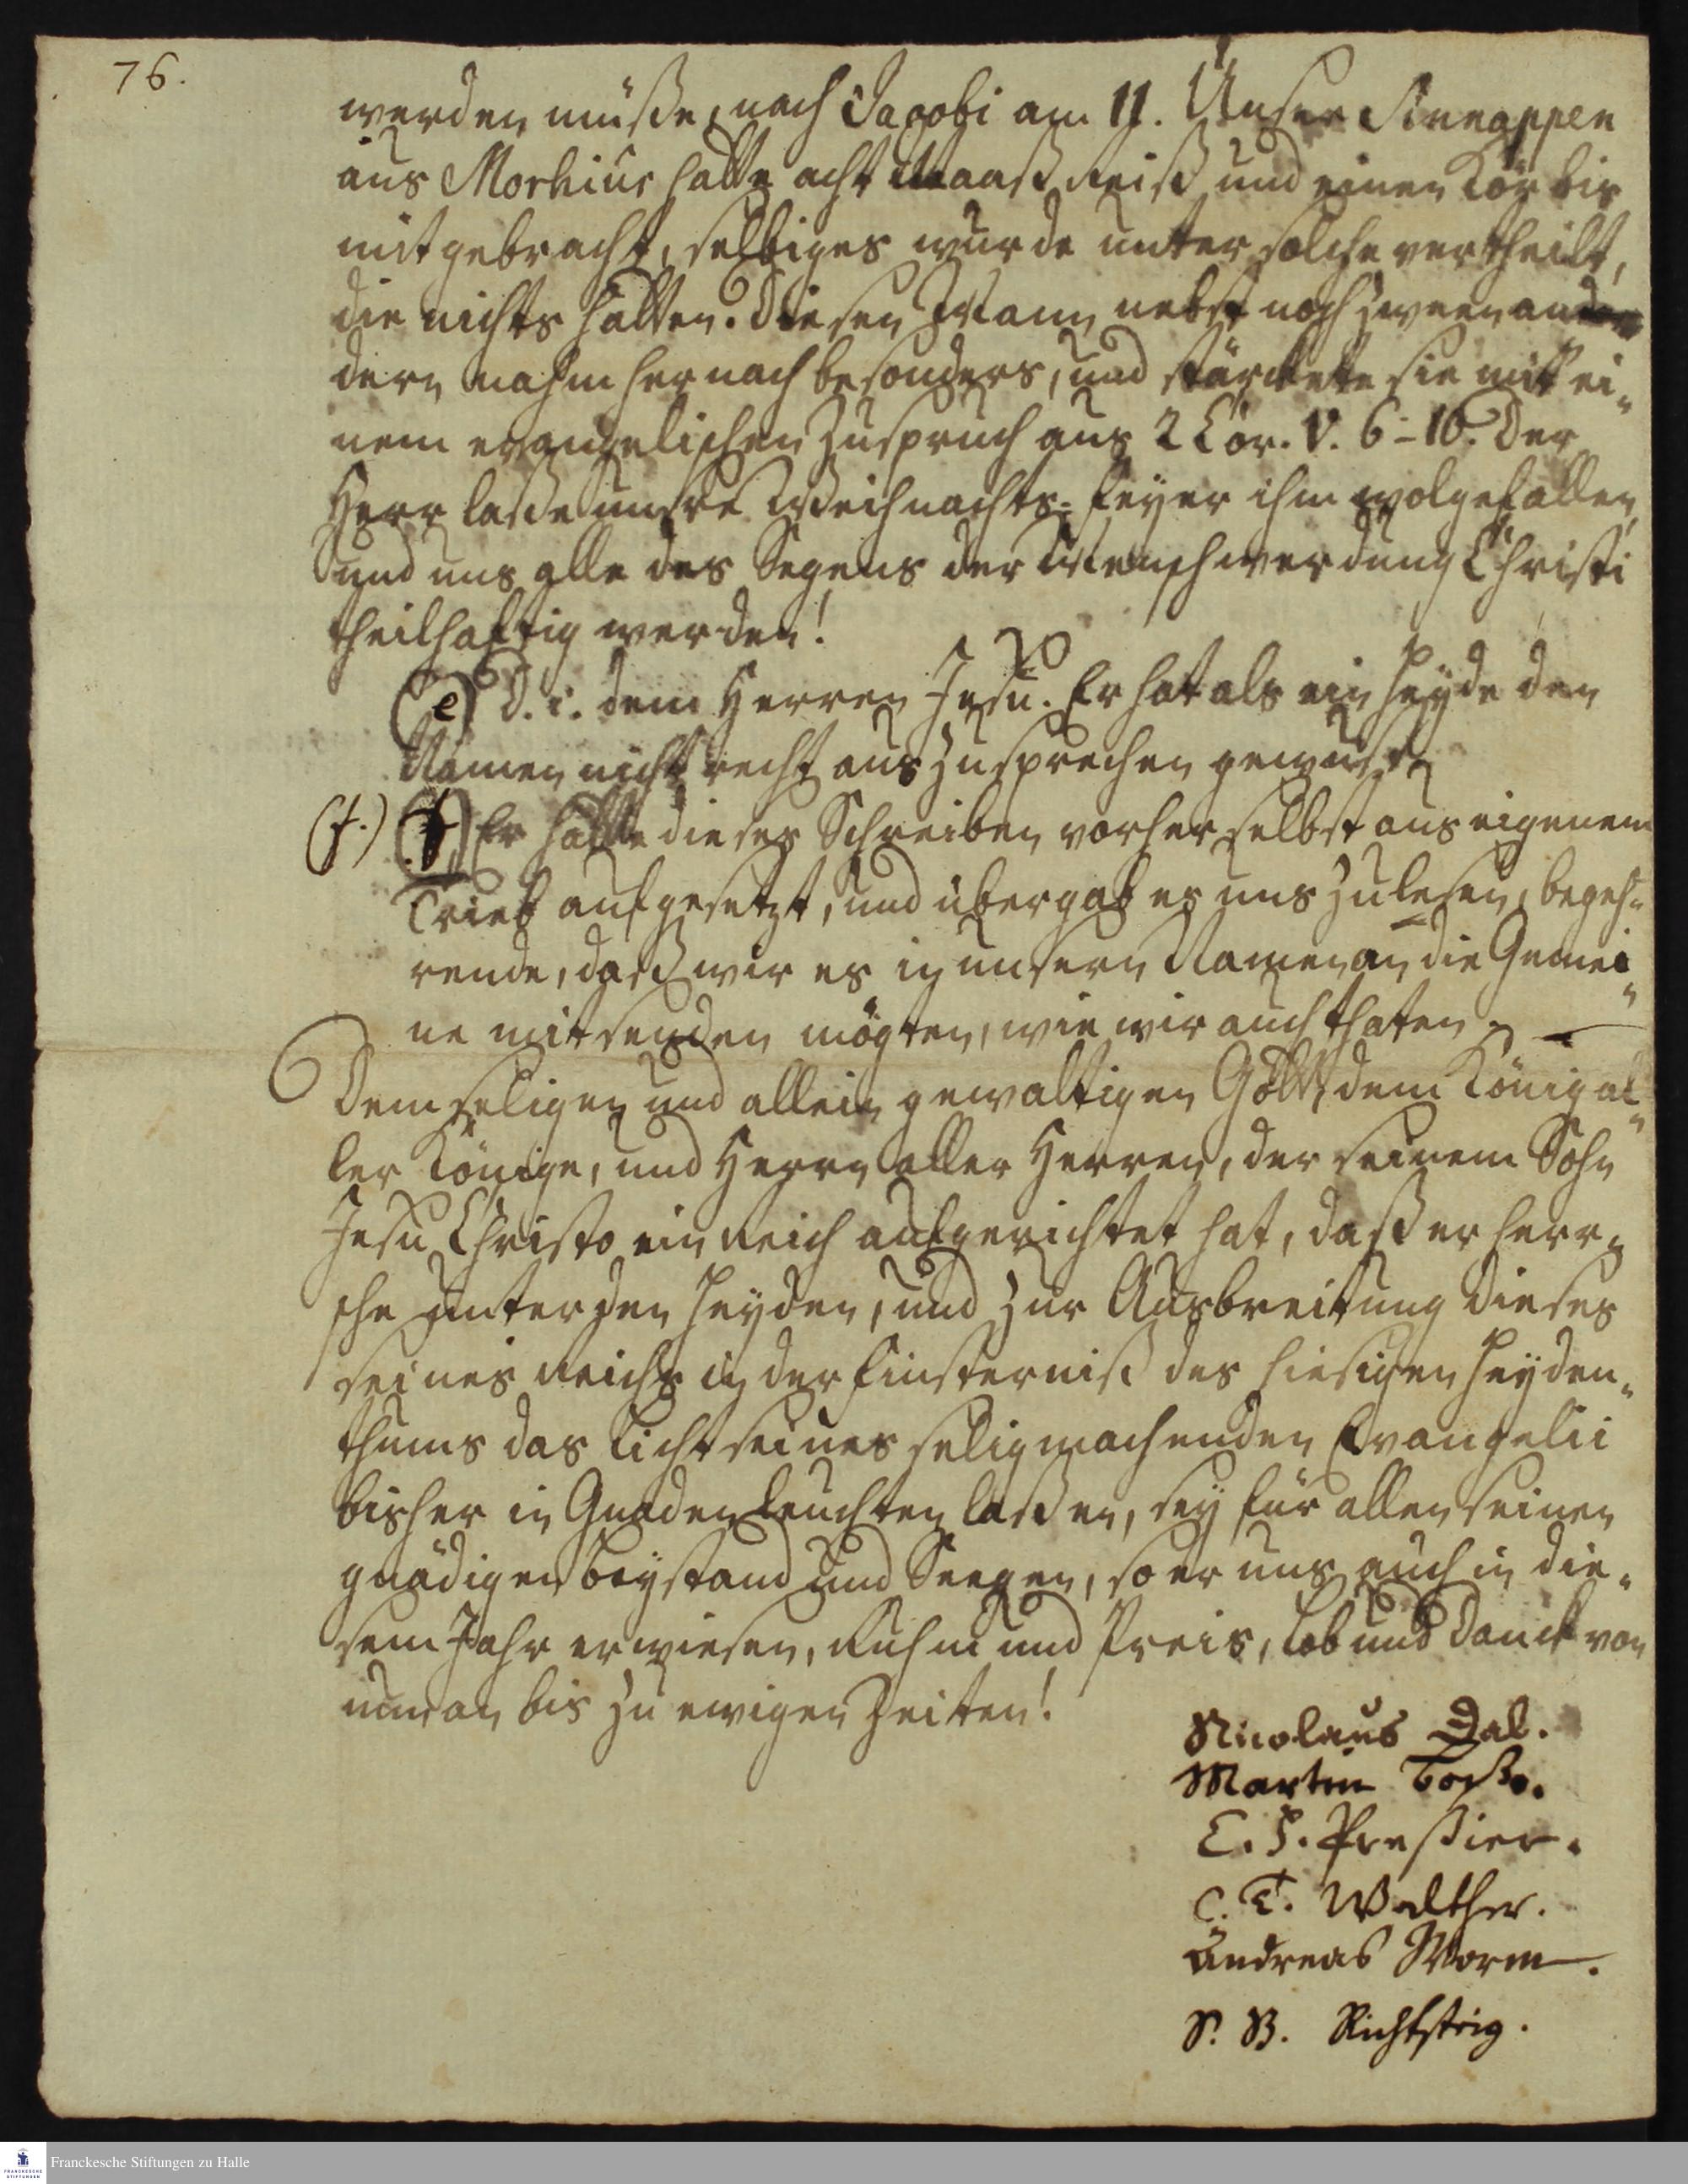 76.
werden müße, nach Jacobi am 11. Unser Sinnappen
aus Morhius hatte acht Maaß Reiß und einen Kürbis
mitgebracht, selbiges wurde unter solche vertheilt,
die nichts hatten. Diesen Mann nebst noch zween an
dern nahm hernach besonders, und stärckete sie mit ei-
nem evangelischen Zuspruch aus 2 Cor. V. 6-10. Der
Herr laße unsre Weihnachts-feyer ihm wolgefallen,
und uns alle des Segens der Menschwerdung Christi
theilhaftig werden!
(e) d. i. dem Herren Jesu. Er hat als ein Heyde den
Namen nicht recht auszusprechen gewust.
(f.) (f) Er hatte dieses Schreiben vorher selbst aus eigenem
Trieb aufgesetzt, und übergab es uns zulesen, begeh-
rende, daß wir es in unsern Namen an die Gemei-
ne mitsenden mögten, wie wir auch thaten.
Dem seligen und allein gewaltigen Gott, dem König al-
ler Könige, und Herrn aller Herren, der seinem Sohn
Jesu Christo ein Reich aufgerichtet hat, daß er herr-
sche unter den Heyden, und zur Ausbreitung dieses
seines Reichs in der Finsterniß des hiesigen Heyden-
thums das Licht seines seligmachenden Evangelii
bisher in Gnaden leuchten laßen, sey für allen seinen
gnädigen Beystand und Seegen, so er uns auch in die-
sem Jahr erwiesen, Ruhm und Preis, Lob und Danck von
nun an bis zu ewigen Zeiten!
Nicolaus Dal.
Martin Boße.
C. F. Preßier.
C. T. Walther.
Andreas Worm.
S. G. Richtsteig.
Franckesche Stiftungen zu Halle
FRANCKESCHE
STIFTUNGEN